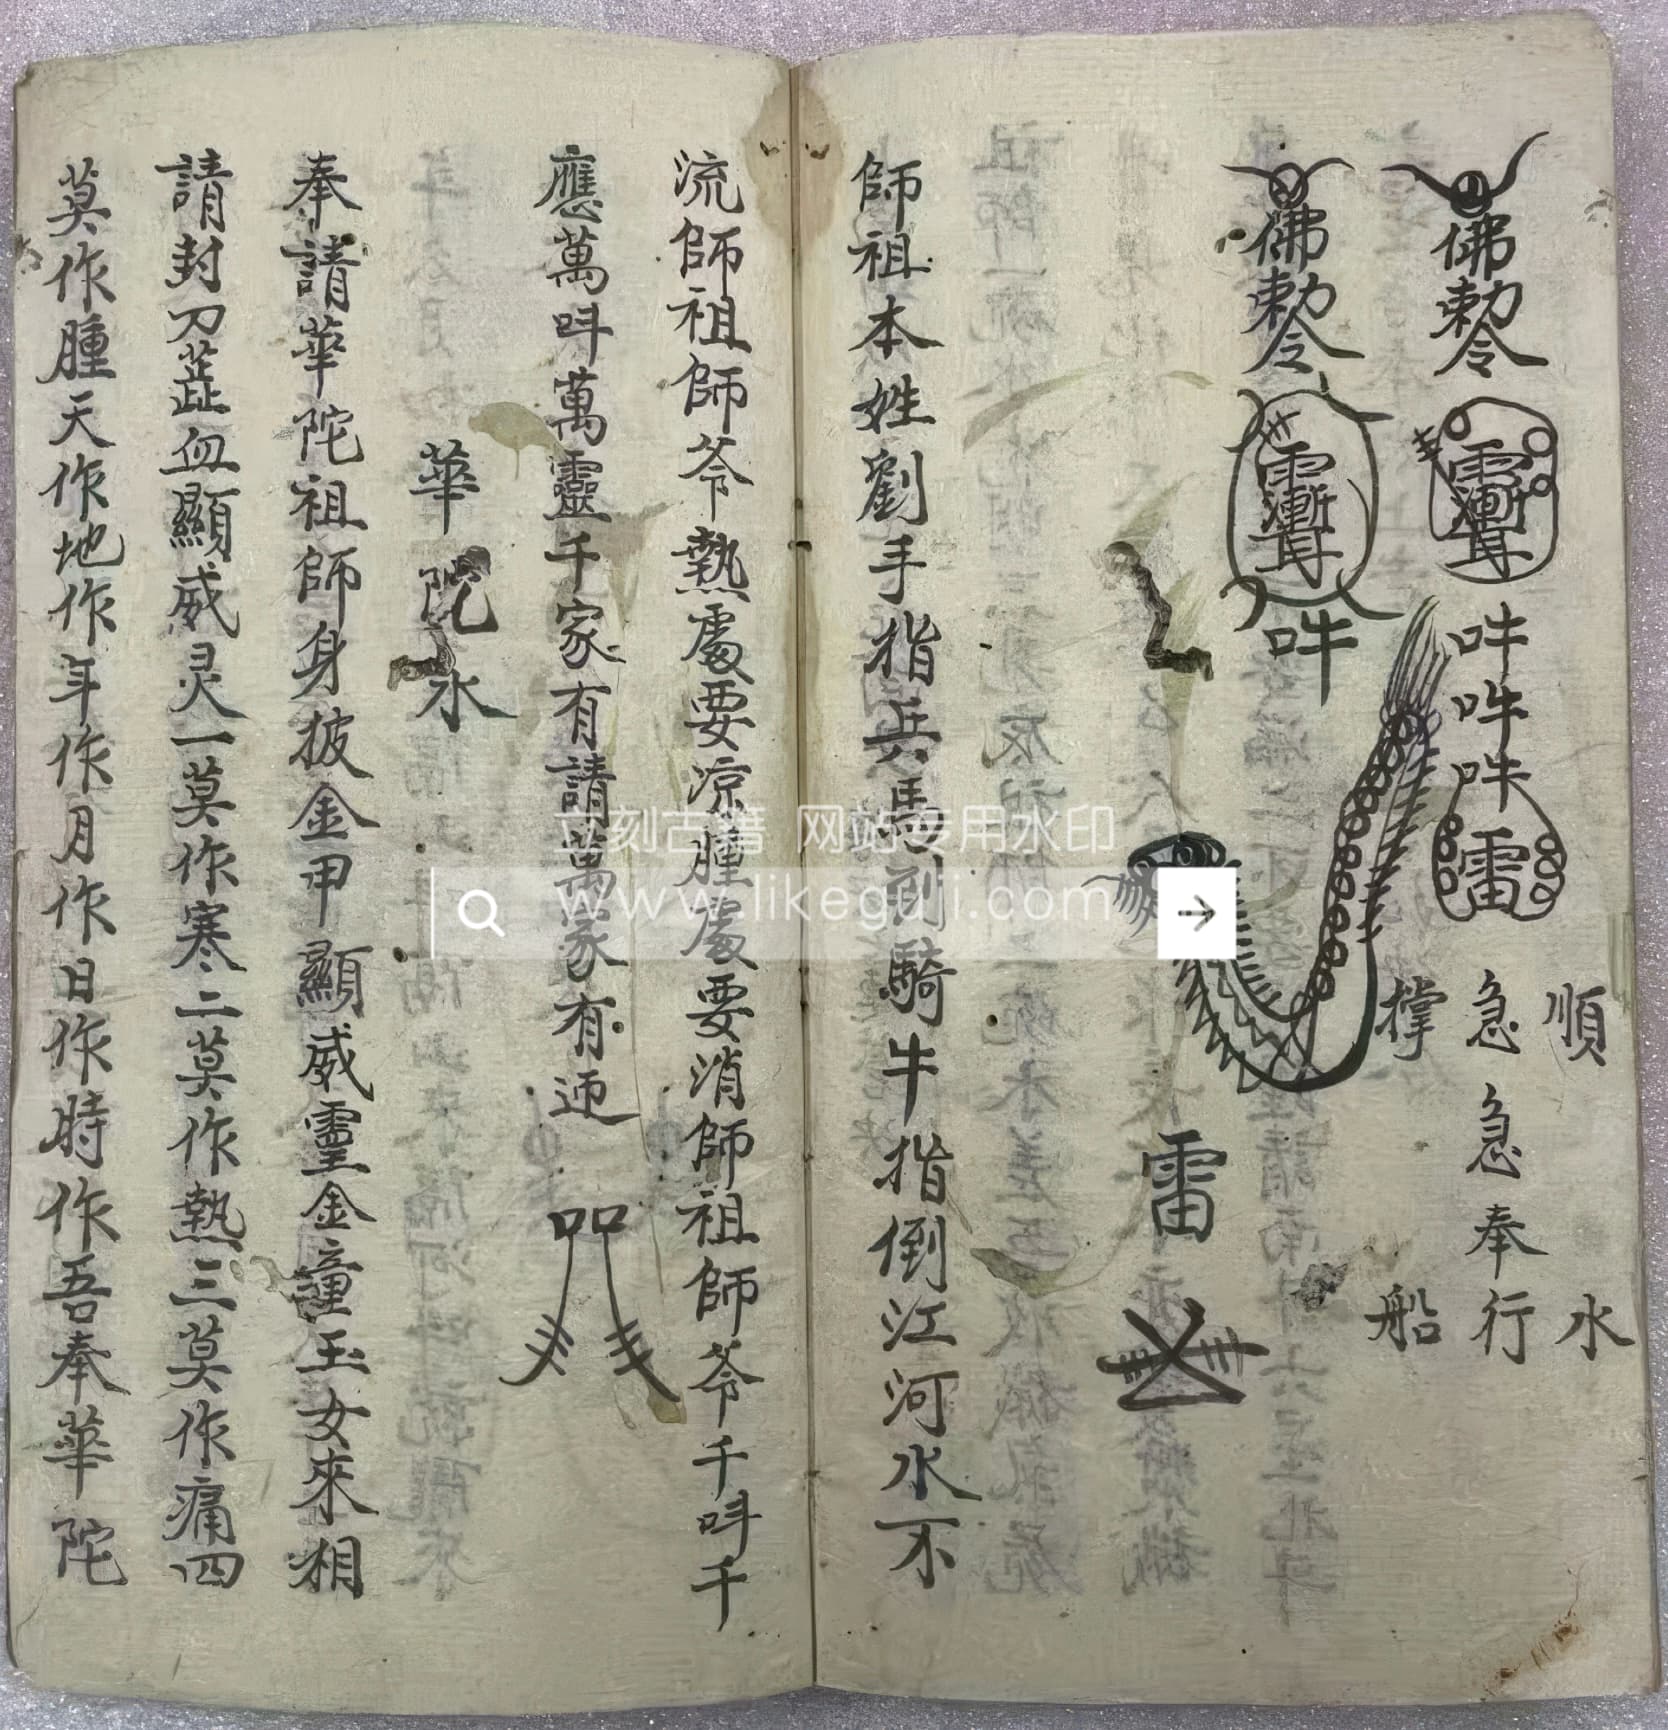 佛勅令
吽吽吽雷
順水
急急奉行
撑船
佛勅令
吽
雷
師祖本姓劉手指兵馬到騎牛指倒江河水不
流師祖師爷熱處要凉腫處要消師祖師爷千呌千
應萬呌萬靈千家有請萬家有迊
華陀水
奉請華陀祖師身披金甲顯威靈金童玉女來相
請封刀莊血顯威灵一莫作寒二莫作熱三莫作痛四
莫作腫天作地作年作月作日作時作吾奉華陀
立刻古籍 网站专用水印
www.likeguji.com